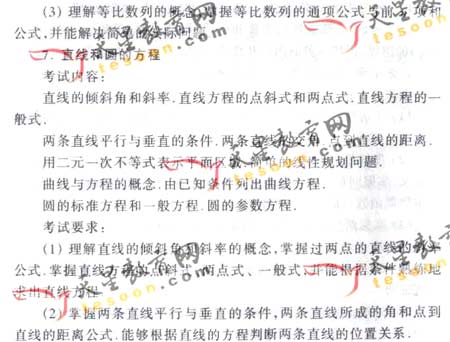 (3) 理解等比数列的概念,掌握等比数列的通项公式与前
公式,并能解决简单的实际问题.
7. 直线和圆的方程
考试内容:
直线的倾斜角和斜率.直线方程的点斜式和两点式.直线方程的一
般式.
两条直线平行与垂直的条件.两条直线的交角.点到直线的距离.
用二元一次不等式表示平面区域.简单的线性规划问题.
曲线与方程的概念.由已知条件列出曲线方程.
圆的标准方程和一般方程.圆的参数方程.
考试要求:
(1) 理解直线的倾斜角和斜率的概念,掌握过两点的直线的斜率
公式.掌握直线方程的点斜式、两点式、一般式,并能根据条件熟练地
求出直线方程.
(2) 掌握两条直线平行与垂直的条件,两条直线所成的角和点到
直线的距离公式.能够根据直线的方程判断两条直线的位置关系.
天星教育网
tesoon.com
天星教育网
tesoon.com
天星教育网
tesoon.com
天星教育网
tesoon.com